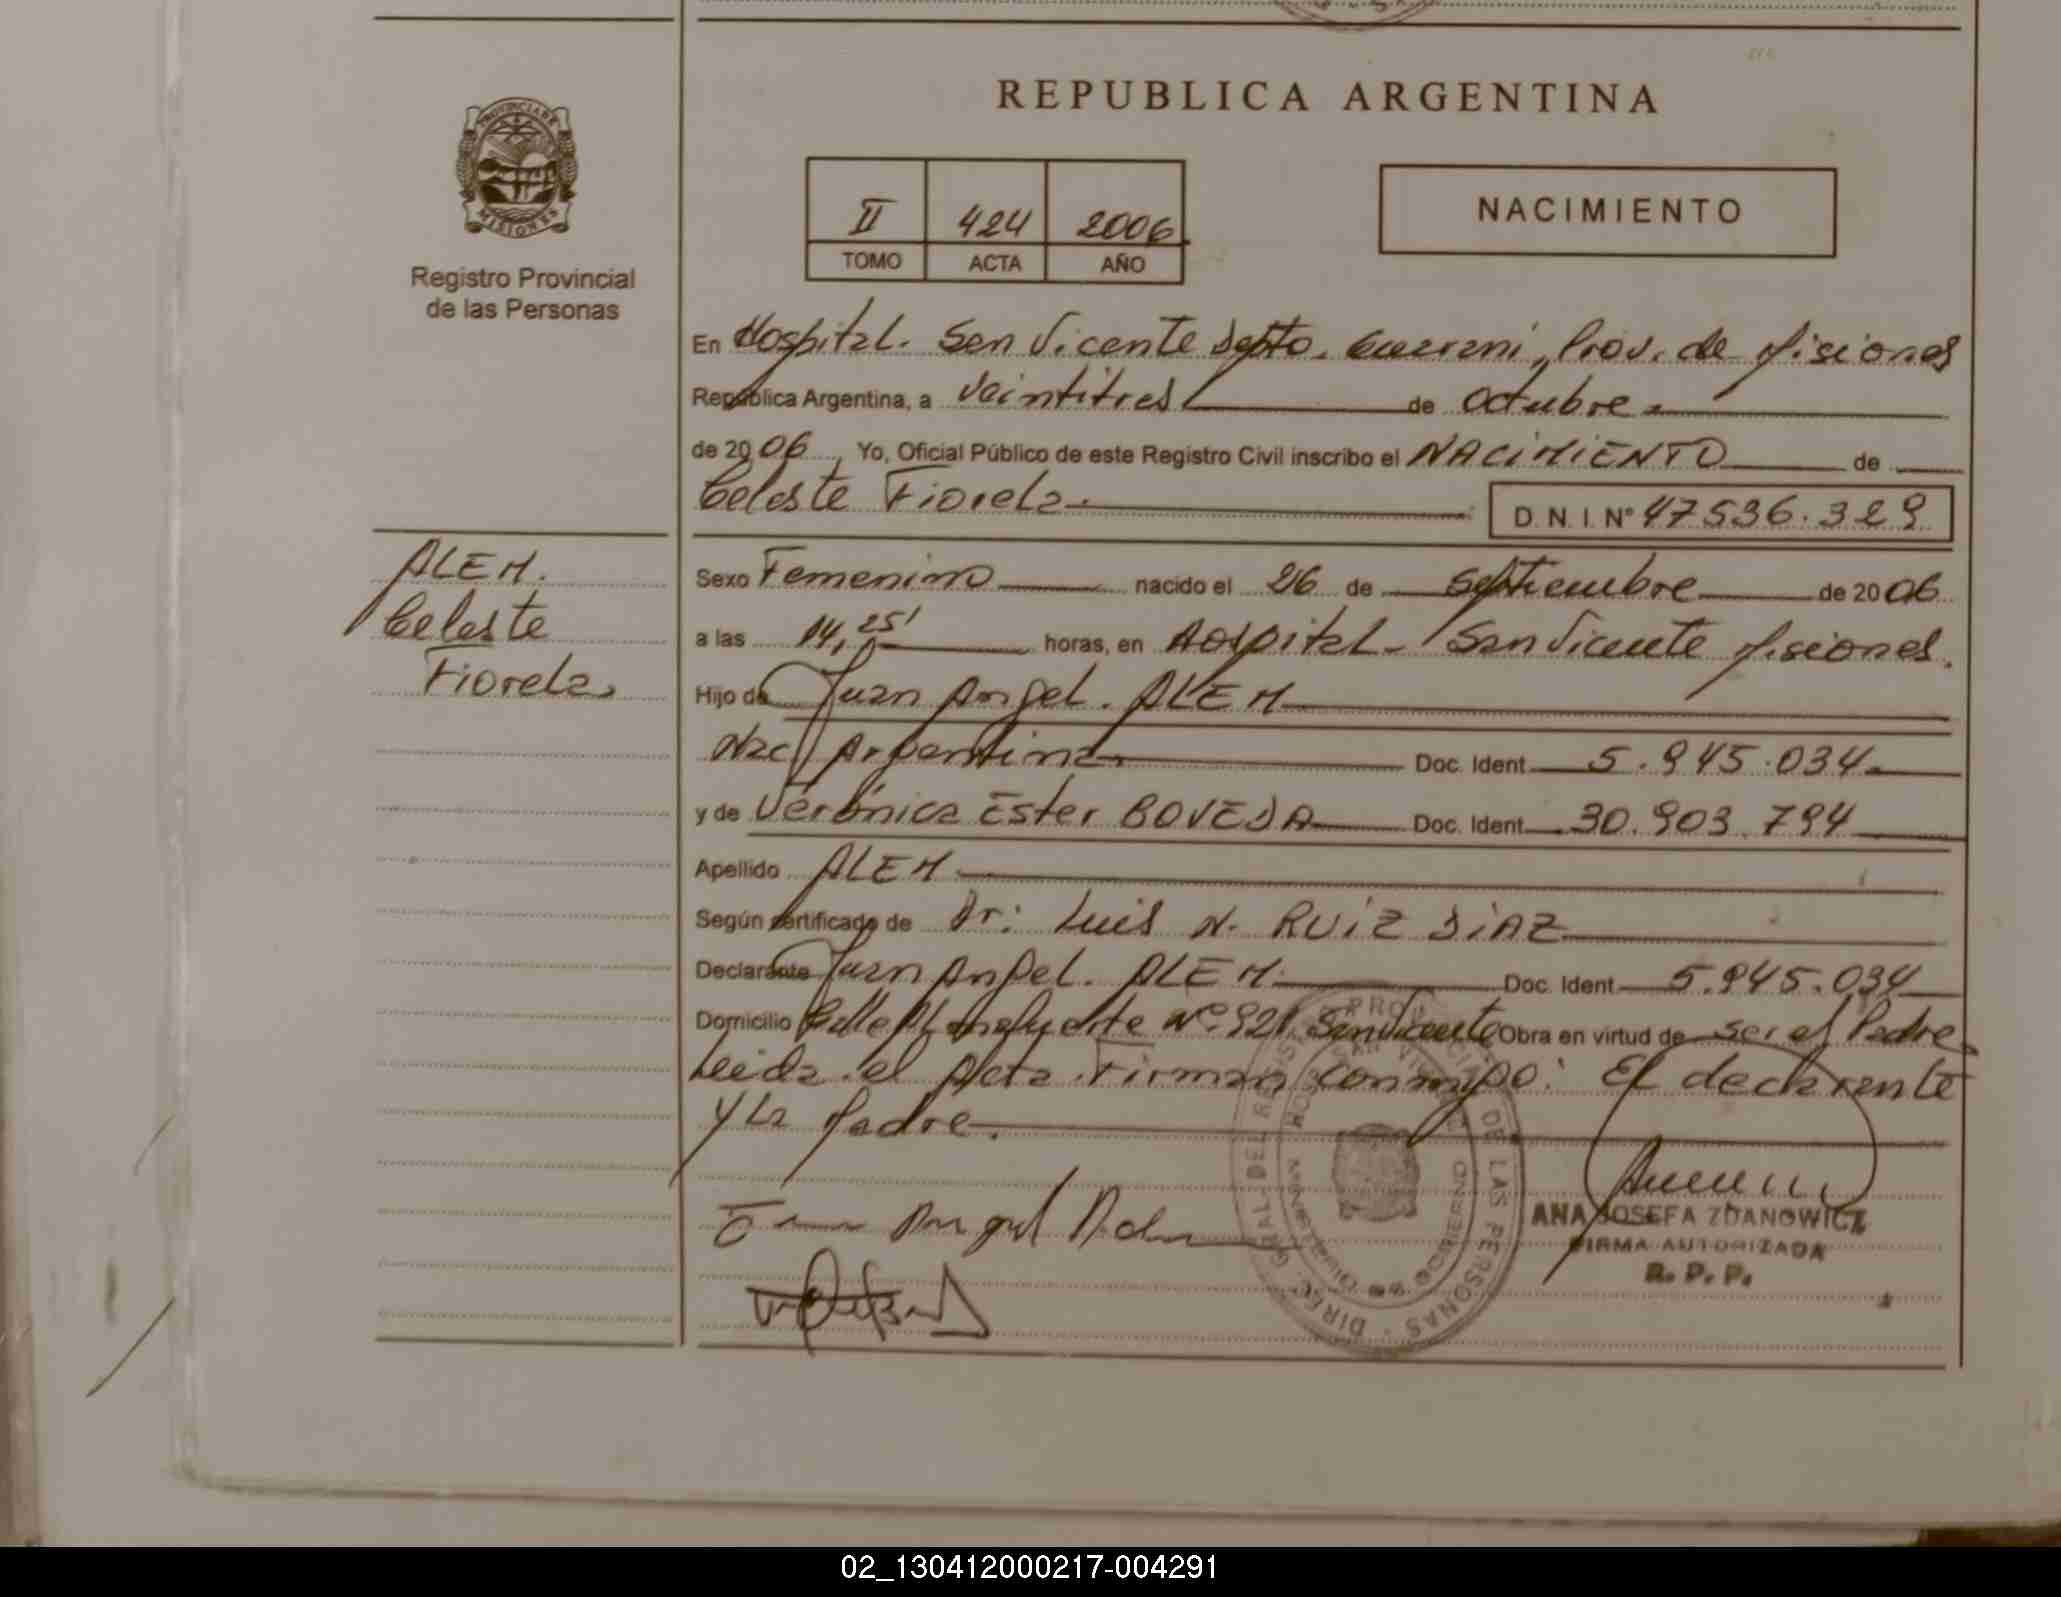 REPUBLICA ARGENTINA
PROVINCIA DE
MISIONES
Registro Provincial
de las Personas
II 424 2006
TOMO ACTA AÑO
NACIMIENTO
En Hospital. San Vicente Dpto. Guarani, Prov. de Misiones
República Argentina, a Veintitres de Octubre
de 2006, Yo, Oficial Público de este Registro Civil inscribo el NACIMIENTO de
Celeste Fiorela D. N. I. Nº 47536.329
ALEM.
Celeste
Fiorela
Sexo Femenino nacido el 26 de Septiembre de 2006
a las 14,25' horas, en Hospital - San Vicente Misiones.
Hijo de Juan Angel. ALEM
Nac Argentina Doc. Ident 5.945.034
y de Verónica Ester BOVEDA Doc. Ident 30.903.794
Apellido ALEM
Según certificado de Dr: Luis N. RUIZ DIAZ
Declarante Juan Angel. ALEM. Doc. Ident 5.945.034
Domicilio Calle Nº 921 San Vicente Obra en virtud de ser el Padre
Leida el Acta Firman conmigo: El declarante
y La Madre.
ANA JOSEFA ZDANOWICZ
FIRMA AUTORIZADA
R. P. P.
DIREC. GRAL. DEL REGISTRO PROVINCIAL DE LAS PERSONAS
02_130412000217-004291